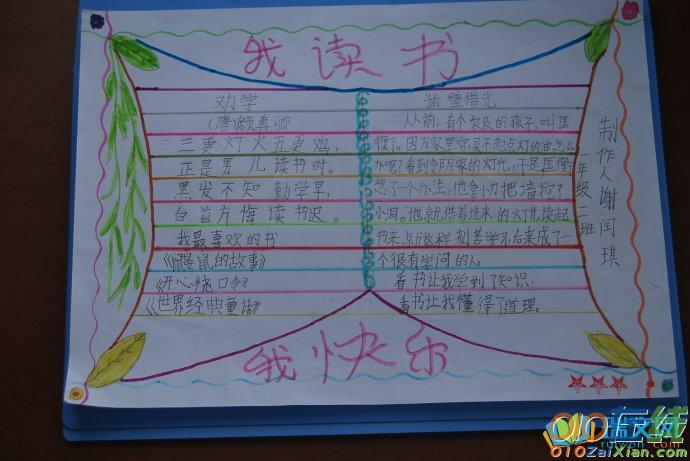 我读书
劝学
(唐颜真卿
三更灯火五更鸡,
正是男儿读书时。
黑发不知勤学早,
白首方悔读书迟。
我最喜欢的书
《鼹鼠的故事》
《开心绕口令》
《世界经典童话》
凿壁借光
从前,有个农民的孩子,叫匡
衡。因为家里穷买不起点灯的油怎么
办呢?看到邻居家的灯光,于是匡衡
想了一个办法,他拿小刀把墙挖了
小洞。他就借着进来的灯光读起
书来,就这样刻苦学习后来成了一
个很有学问的人。
看书让我学到了知识,
看书让我懂得了道理。
年级二班
制作人谢闰琪
我快乐
ruiwen.com
010在线
010ZaiXian.com